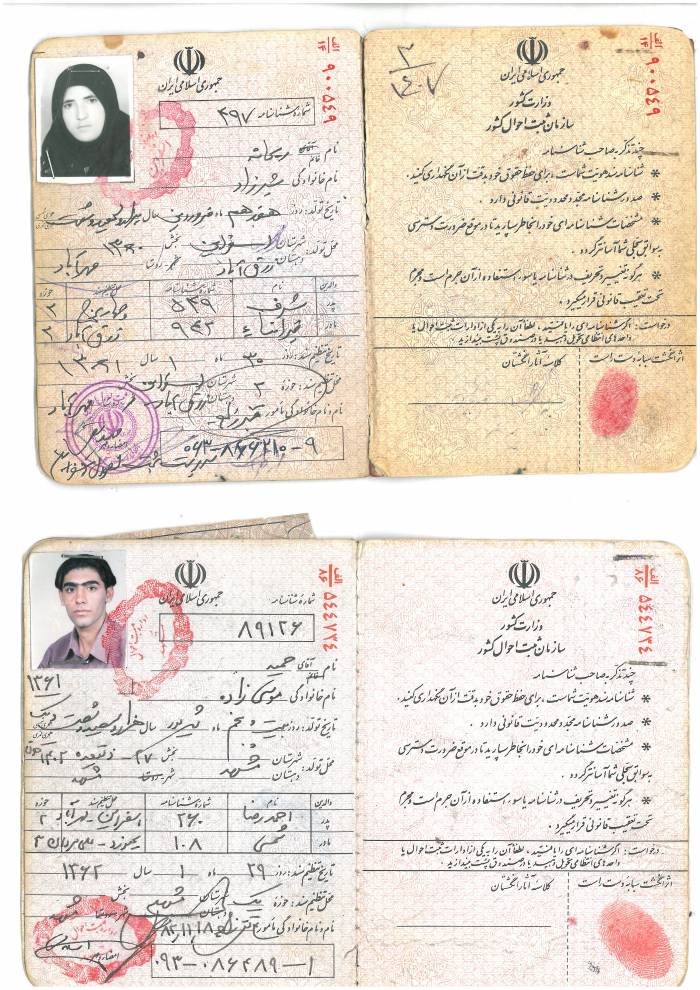 جمهوری اسلامی ایران
شماره شناسنامه ۴۹۷
نام آقای خانم ریحانه
نام خانوادگی شیرزاد
تاریخ تولد: روز هفدهم ماه فروردین سال
محل تولد: شهرستان اسفراین بخش
دهستان زرق آباد
والدین نام شماره شناسنامه محل تنظیم سند حوزه
پدر شرف ۵۴۹ ۲
مادر ۹۴۲ زرق آباد ۲
تاریخ تنظیم سند: روز ۳۰ ماه ۱ سال
محل تنظیم سند: حوزه ۲ شهرستان اسفراین بخش
نام و نام خانوادگی مأمور
۰۶۳-۸۶۶۲۱۰-۹
الف ۱۴ ۹۰۰۵۴۹
۲/۱۴۰۷
جمهوری اسلامی ایران
وزارت کشور
سازمان ثبت احوال کشور
چند تذکر به صاحب شناسنامه
* شناسنامه سند هویت شماست، برای حفظ حقوق خود به دقت از آن نگهداری کنید.
* صدور شناسنامه مجدد محدودیت قانونی دارد.
* مشخصات شناسنامه‌ای خود را بخاطر بسپارید تا در موقع ضرورت دسترسی
به سوابق سجلی شما آسانتر گردد.
* هرگونه تغییر و تحریف در شناسنامه یا سوء استفاده از آن جرم است و مجرم
تحت تعقیب قانونی قرار میگیرد.
درخواست: اگر شناسنامه‌ای را یافتید، لطفاً آن را به یکی از ادارات ثبت احوال یا
واحدهای انتظامی تحویل دهید یا در صندوق پست بیندازید
اثر انگشت سبابه دست راست
کلاسه آثار انگشتان
جمهوری اسلامی ایران
شماره شناسنامه
۸۹۱۲۶
نام آقای خانم حمید
۱۳۶۱
نام خانوادگی موسی زاده
تاریخ تولد: روز بیست و پنجم ماه شهریور سال هزار و سیصد و شصت و یک
محل تولد: شهرستان مشهد بخش ۲۷ ذیقعده ۱۴۰۲
دهستان مشهد
والدین نام شماره شناسنامه محل تنظیم سند حوزه
پدر احمدرضا ۲۶۰ اسفراین ۲
مادر شمسی ۱۰۸ ۳
تاریخ تنظیم سند: روز ۲۹ ماه ۱ سال ۱۳۶۲
محل تنظیم سند: حوزه یک شهرستان مشهد بخش
نام و نام خانوادگی مأمور
۰۹۳-۰۸۶۴۸۹-۱
الف ۸۶ ۵۴۴۷۳۴
جمهوری اسلامی ایران
وزارت کشور
سازمان ثبت احوال کشور
چند تذکر به صاحب شناسنامه
* شناسنامه سند هویت شماست، برای حفظ حقوق خود به دقت از آن نگهداری کنید.
* صدور شناسنامه مجدد محدودیت قانونی دارد.
* مشخصات شناسنامه‌ای خود را بخاطر بسپارید تا در موقع ضرورت دسترسی
به سوابق سجلی شما آسانتر گردد.
* هرگونه تغییر و تحریف در شناسنامه یا سوء استفاده از آن جرم است و مجرم
تحت تعقیب قانونی قرار میگیرد.
درخواست: اگر شناسنامه‌ای را یافتید، لطفاً آن را به یکی از ادارات ثبت احوال یا
واحدهای انتظامی تحویل دهید یا در صندوق پست بیندازید
اثر انگشت سبابه دست راست
کلاسه آثار انگشتان